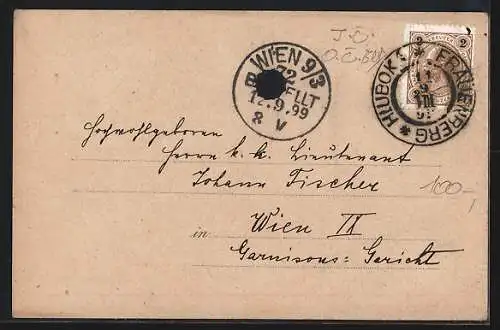 J.D.
WIEN 9/3
72
BESTELLT
12.9.99
8 V
2 2
HLUBOKÁ * FRAUENBERG *
11
9
VIII
99
Hochwohlgeboren
Herrn k. k. Lieutenant
Johann Fischer
100-,
in Wien IX
Garnisons-Gericht